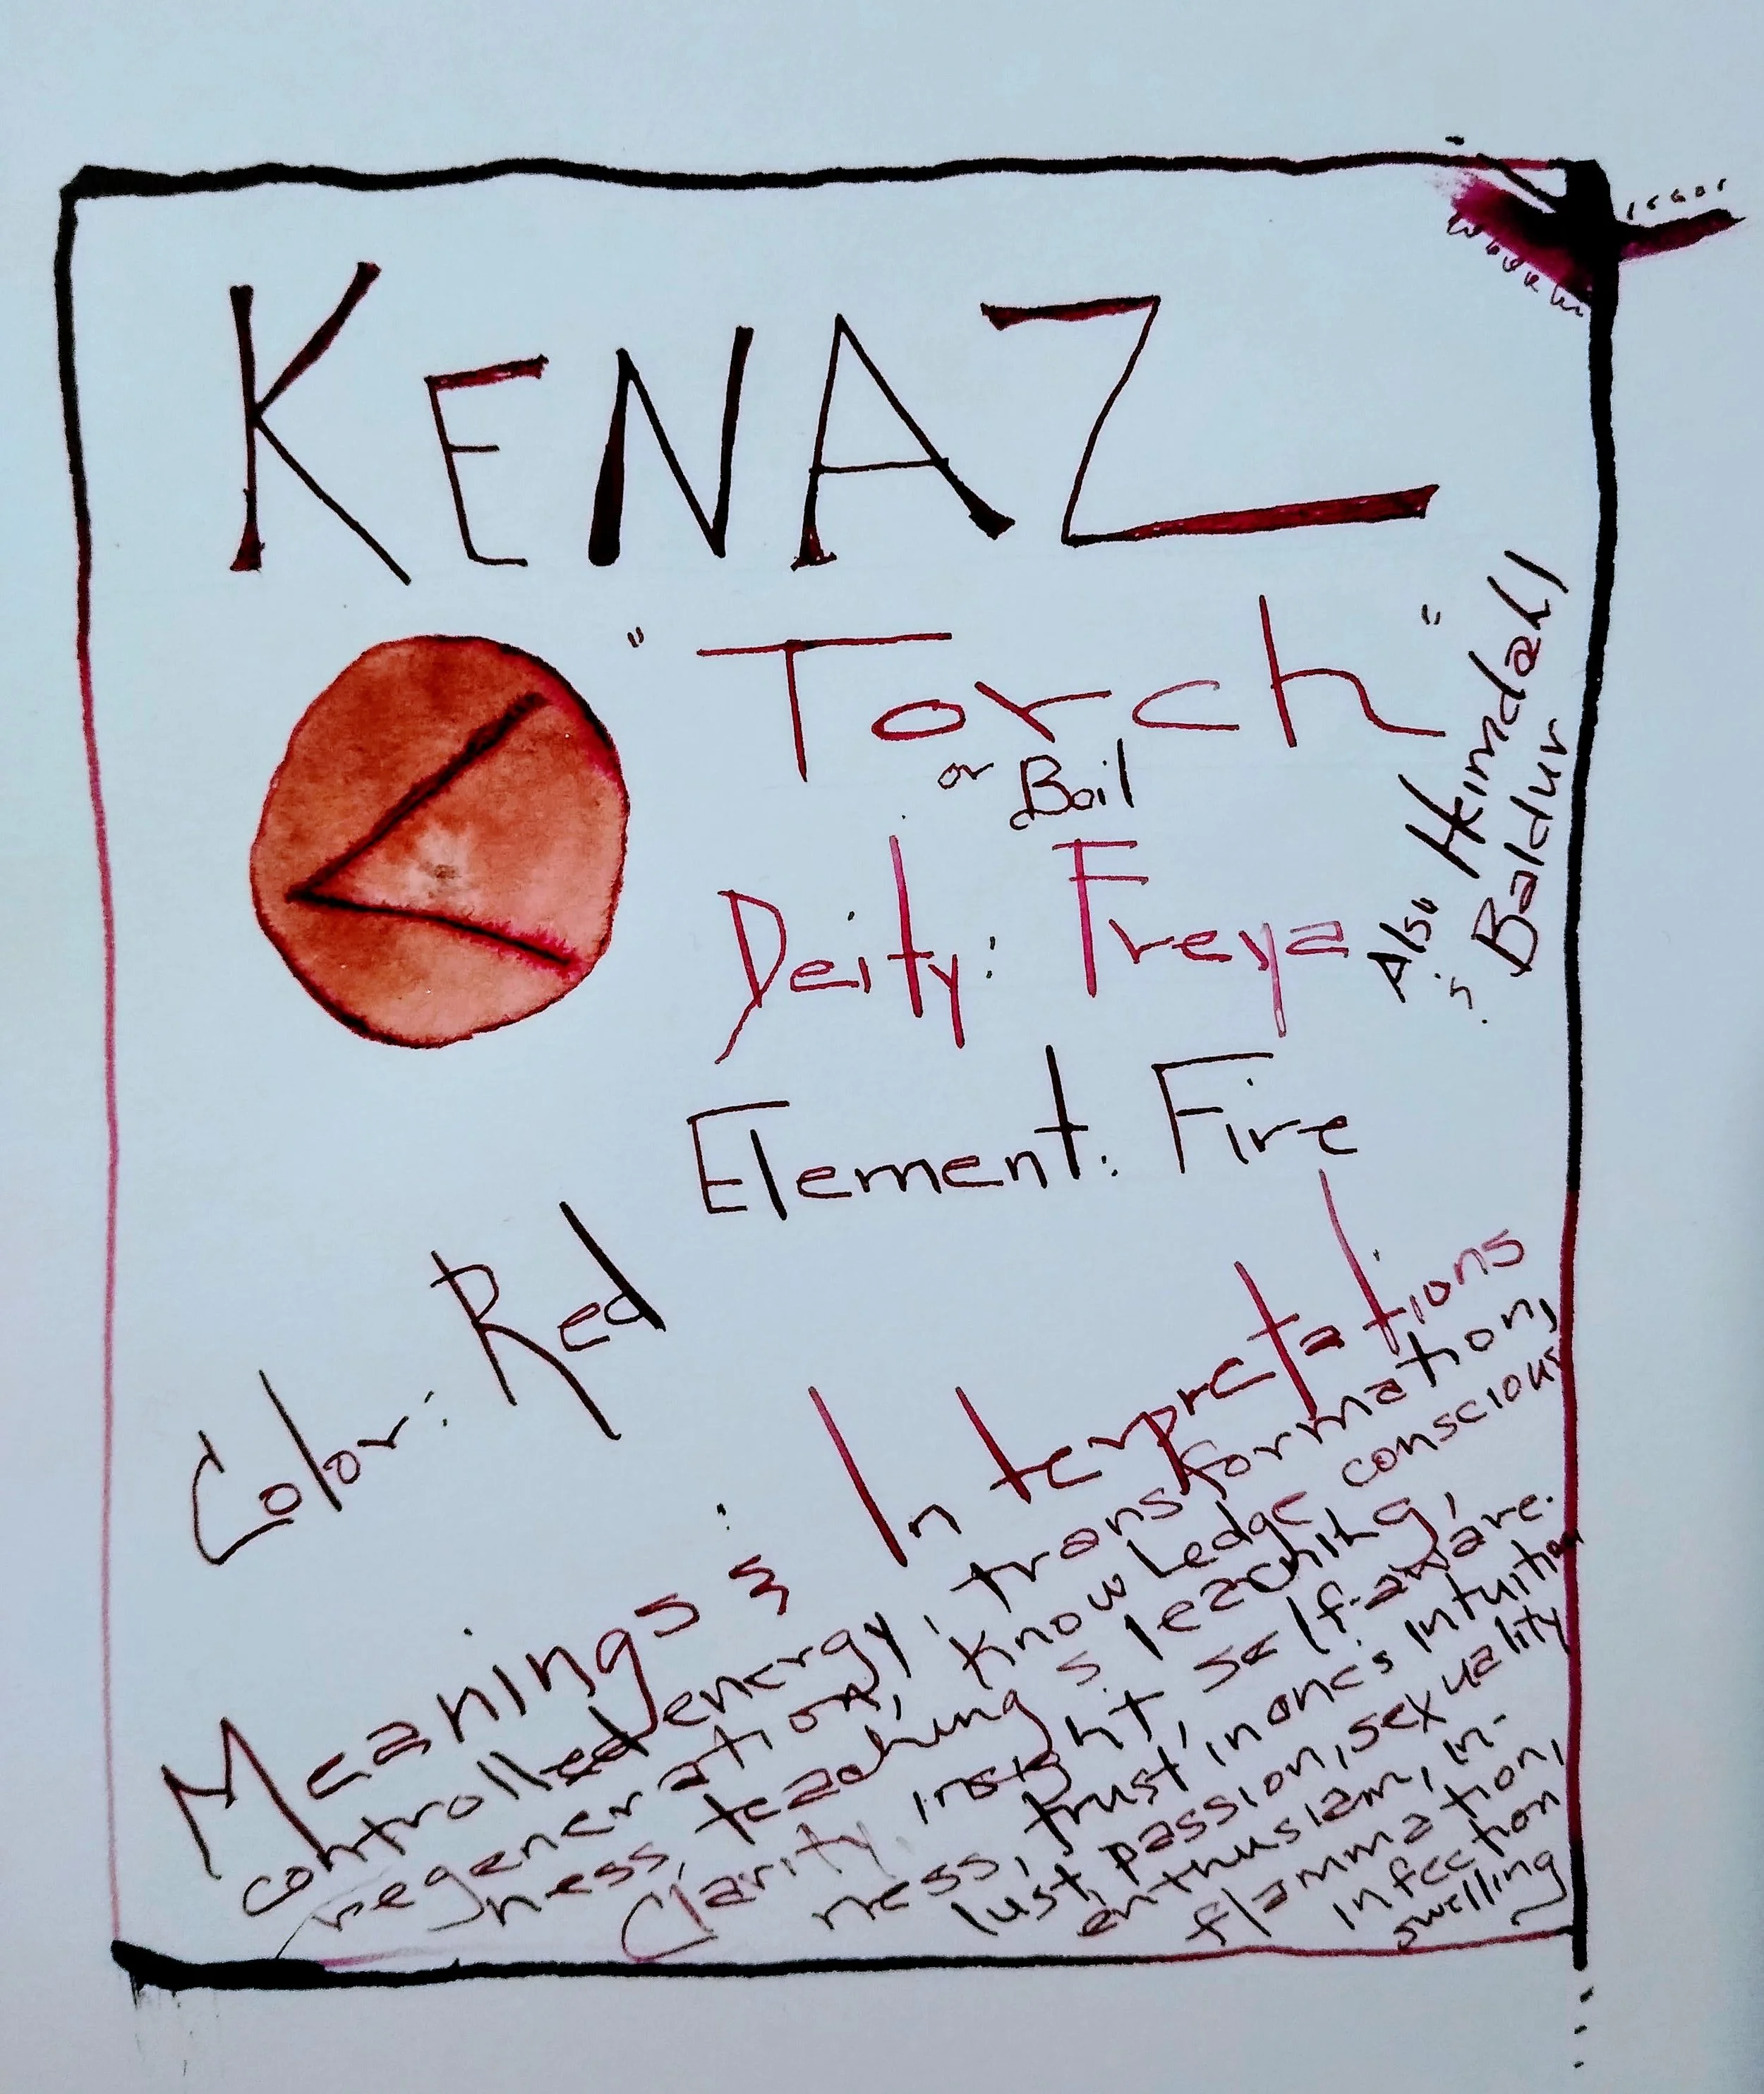 KENAZ
"Torch"
or Boil
Deity: Freya
Also Heimdahl
& Baldur
Element: Fire
Color: Red
Meanings & Interpretations
controlled energy, transformation,
regeneration, knowledge conscious
ness, teaching & leaching,
Clarity, insight, self-aware-
ness, trust in one's intuition
lust, passion, sexuality
enthusiam, in-
flammation,
infection
swelling